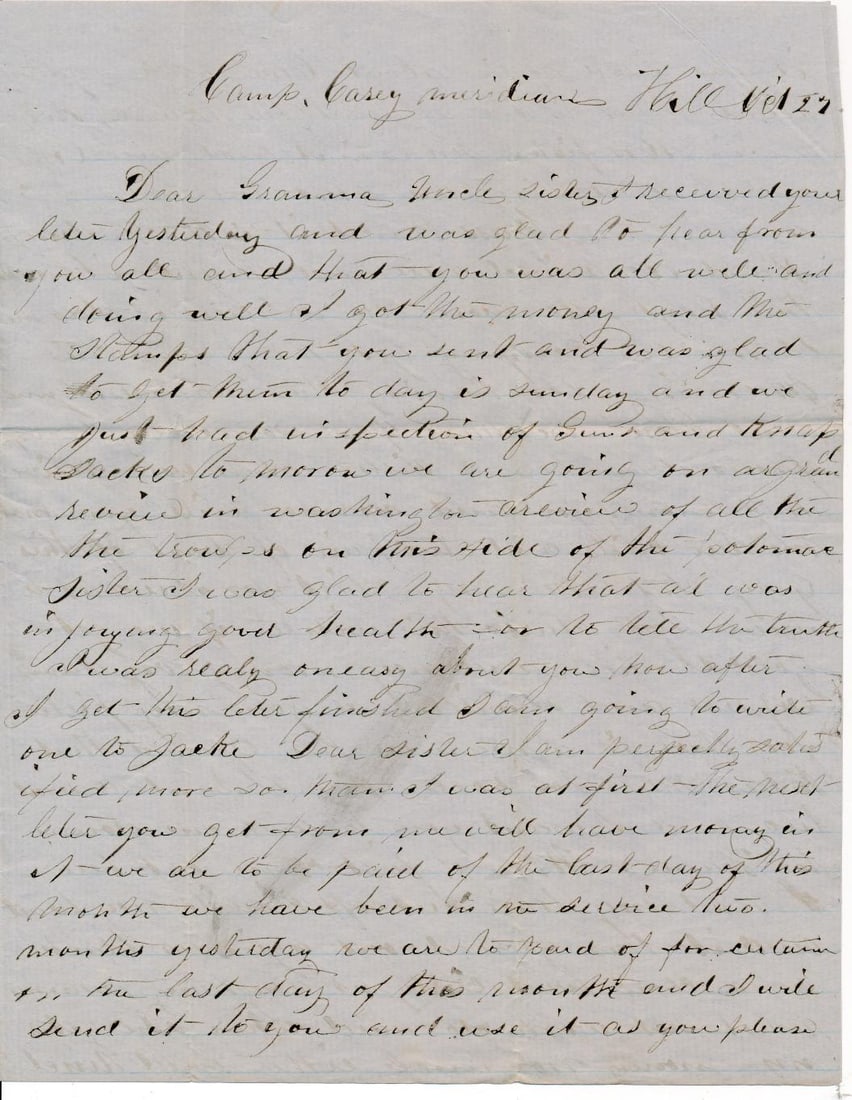 Camp. Casey meridian Hill Oct 27
Dear Granma Uncle sister I received your
leter Yesterday and was glad to hear from
you all and that you was all well and
doing well I got the money and the
stamps that you sent and was glad
to get them to day is sunday and we
just had inspection of Guns and Knap
sacks to morow we are going on a grand
review in washington a review of all the
the troops on this side of the potomac
sister I was glad to hear that al was
injoying good health for to tell the truth
I was realy oneasy about you how after
I get this leter finished I am going to write
one to Jacke Dear sister I am perfectly satis
ified more so than I was at first the next
leter you get from me will have money in
it we are to be paid of the last day of this
month we have been in the service two.
months yesterday we are to paid of for certain
on the last day of this month and I will
send it to you and use it as you please